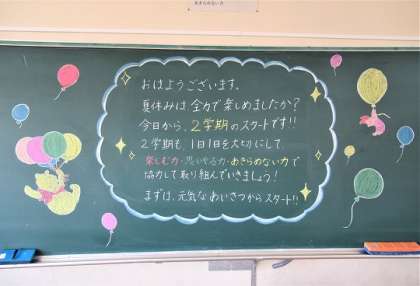 あきらめない力
おはようございます。
夏休みは全力で楽しめましたか?
今日から、2学期のスタートです!!
2学期も、1日1日を大切にして、
楽しむ力・思いやる力・あきらめない力で
協力して取り組んでいきましょう!
まずは、元気なあいさつからスタート!!